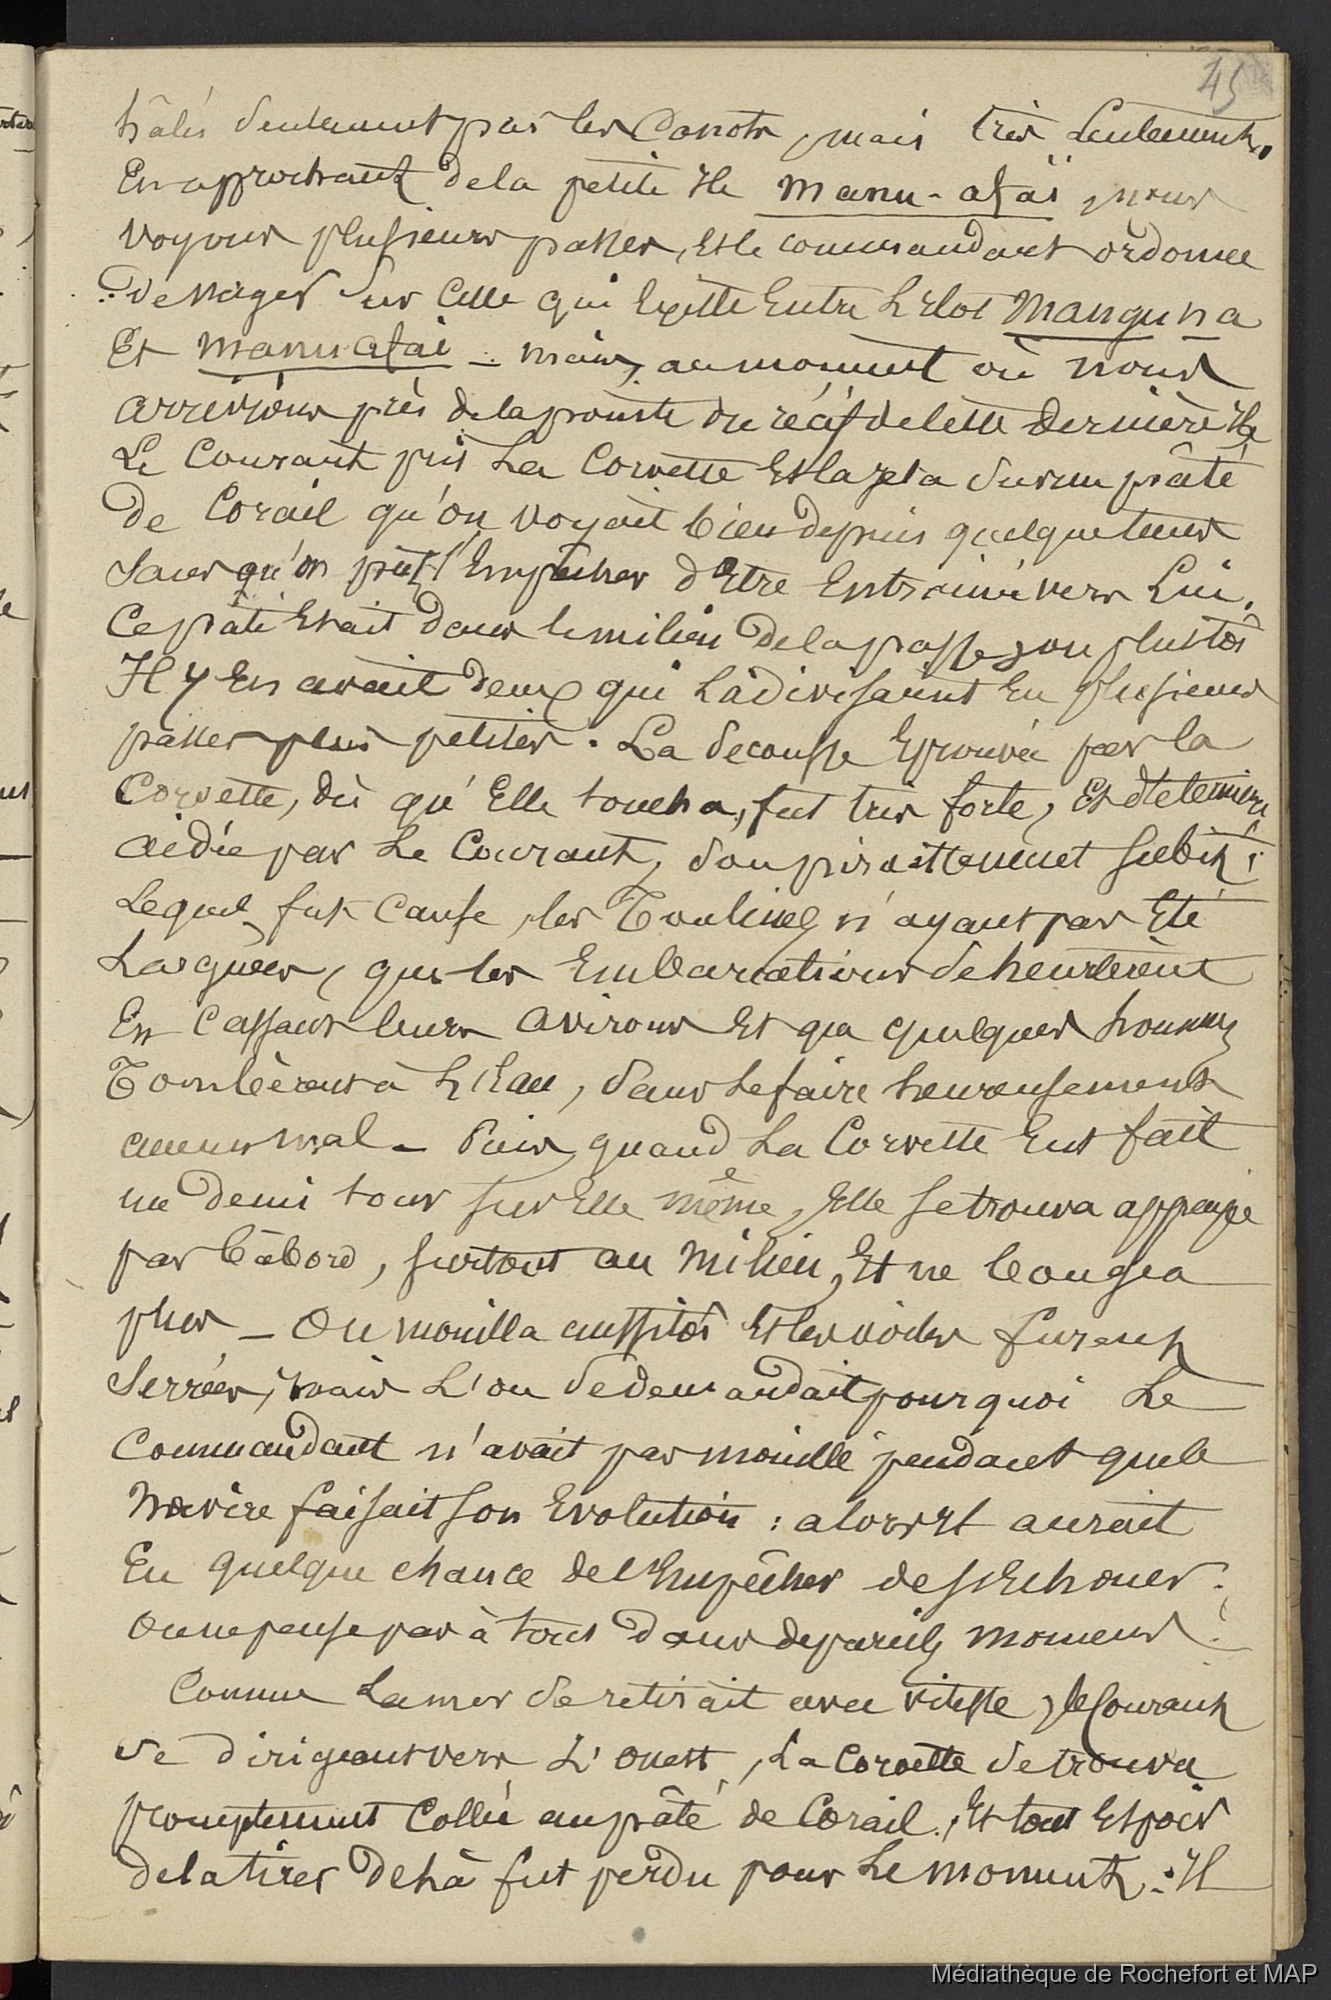 45
hâlés seulement par les Canots, mais très Lentement.
En approchant de la petite Ile Manu-afai, nous
voyons plusieurs passes, et le commandant ordonne
de nager sur Celle qui Existe Entre L'Ilot Manguna
Et Manuafai - mais, au moment où nous
arrivions près de la pointe du récif de cette Dernière Ile
Le Courant prit La Corvette Et la jeta sur un pâté
de Corail qu'on voyait bien depuis quelque tems
sans qu'on pût l'Empêcher d'Etre Entrainé vers Lui.
Ce pâté Etait dans le milieu de la passe, ou plustôt
Il y En avait deux qui La divisaient En plusieurs
passes plus petites. La secousse Eprouvée par la
Corvette, dès qu'Elle toucha, fut très forte, Et Elle
aidée par Le Courant, subit;
Lequel fut Cause, les Toulines n'ayant pas Eté
Larguées, que les Embarcations se heurtèrent
En Cassant leurs avirons Et que quelques hommes
Tombèrent à L'Eau, sans se faire heureusement
aucun mal - Puis, quand La Corvette Eut fait
un demi tour sur Elle même, Elle se trouva appuyée
par bâbord, surtout au milieu, Et ne bougea
plus - On mouilla aussitôt Et les voiles furent
Serrées, mais L'on se demandait pourquoi Le
Commandant n'avait pas mouillé pendant que le
Navire faisait son Evolution : alors il aurait
Eu quelque chance de l'Empêcher de s'Echouer.
On ne pense pas à tout dans de pareils momens!
Comme La mer se retirait avec vitesse, le Courant
se dirigeant vers L'Ouest, La Corvette se trouva
promptement Collée au pâté de Corail, Et tout Espoir
de la tirer de là fut perdu pour Le moment. Il
Médiathèque de Rochefort et MAP